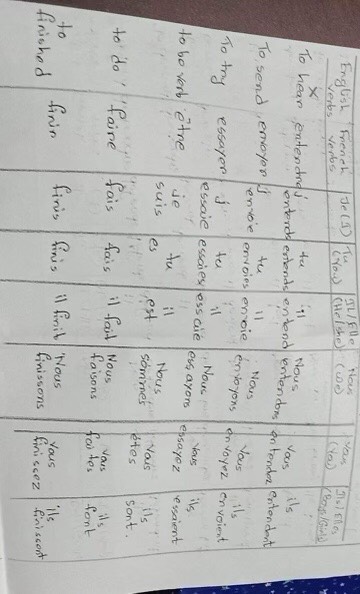 English verbs French verbs Je (I) Tu (You) Il/Elle (He/she) Nous (We) Vous (You) Ils/Elles (Boys/Girls)
x
To hear entendre j entends tu entends il entend Nous entendons Vous entendez ils entendent
To send envoyer j envoie tu envoies il envoie Nous envoyons Vous envoyez ils envoient
To try essayer j essaie tu essaies il essaie Nous essayons Vous essayez ils essaient
to be verb être je suis tu es il est Nous sommes Vous êtes ils sont.
to do faire fais fais il fait Nous faisons Vous faites ils font
to finished finir finis finis il finit Nous finissons Vous finissez ils finissent